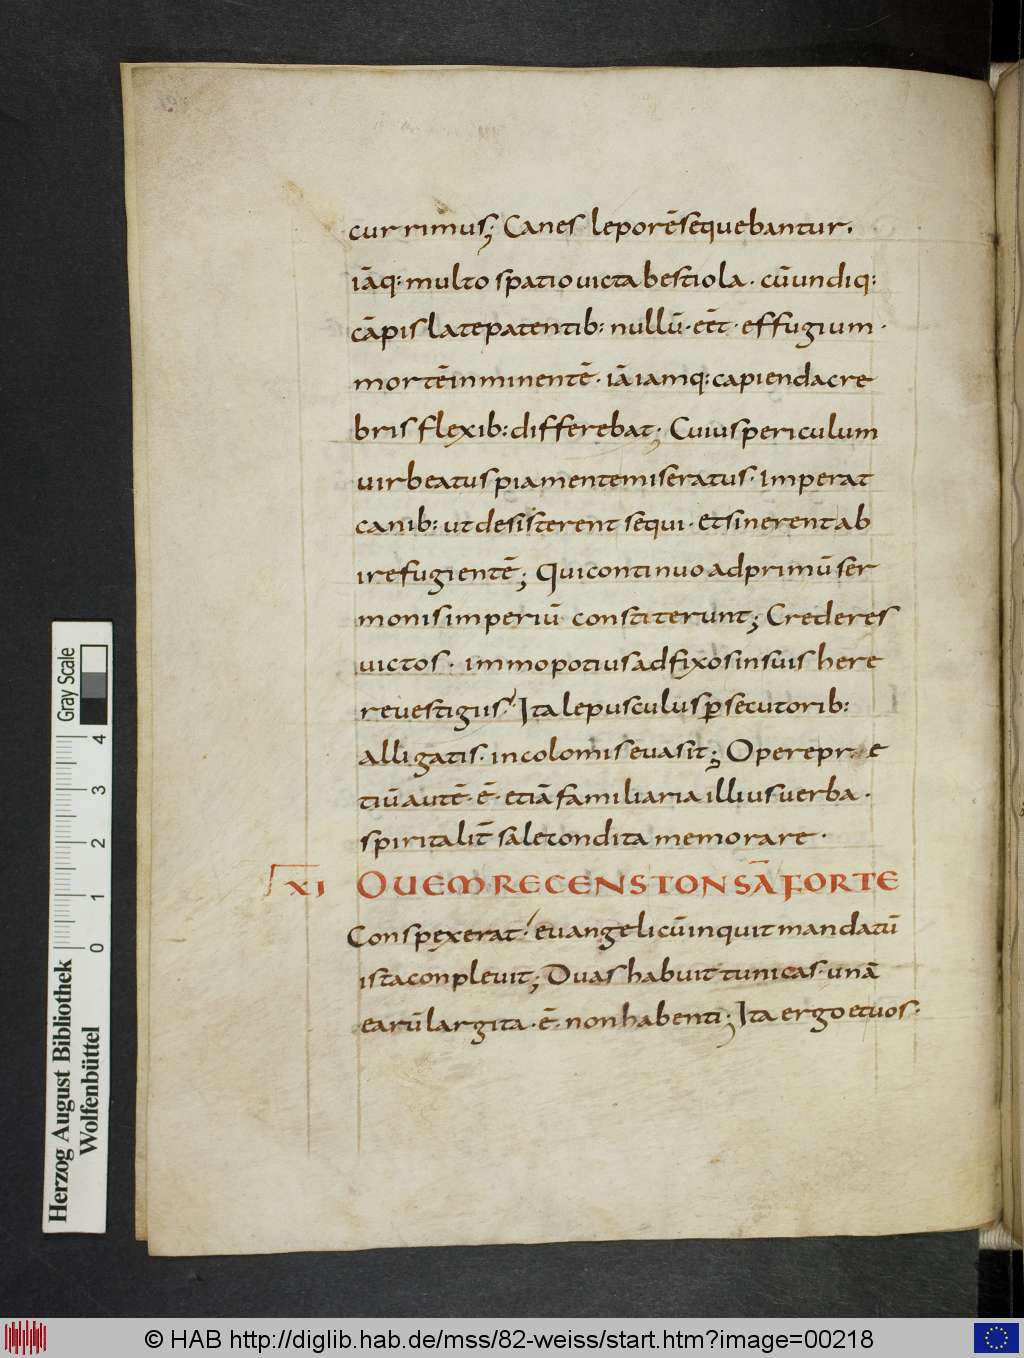 currimus; Canes leporē sequebantur.
iāq: multo spatio uicta bestiola · cū undiq:
cāpis late patentib: nullū · eēt · effugium ·
mortē inminentē · iā iamq: capienda cre
bris flexib: differebat; Cuius periculum
uir beatus pia mente miseratus · imperat
canib: ut desisterent sequi · et sinerent ab
ire fugientē; Qui continuo ad primū ser
monis imperiū constiterunt; Crederes
uictos · immo potius adfixos in suis here
re uestigiis · Ita lepusculus psecutorib:
alligatis · incolomis euasit; Opere pr e
tiū autē · ē · etiā familiaria illius uerba ·
spiritalit̄ sale condita memorare ·
XI OUEM RECENS TONSĀ FORTE
Conspexerat · euangelicū inquit mandatū
ista conpleuit; Duas habuit tunicas · unā
earū largita · ē · non habenti; Ita ergo et uos ·
Herzog August Bibliothek
Wolfenbüttel
0 1 2 3 4
Gray Scale
© HAB http://diglib.hab.de/mss/82-weiss/start.htm?image=00218